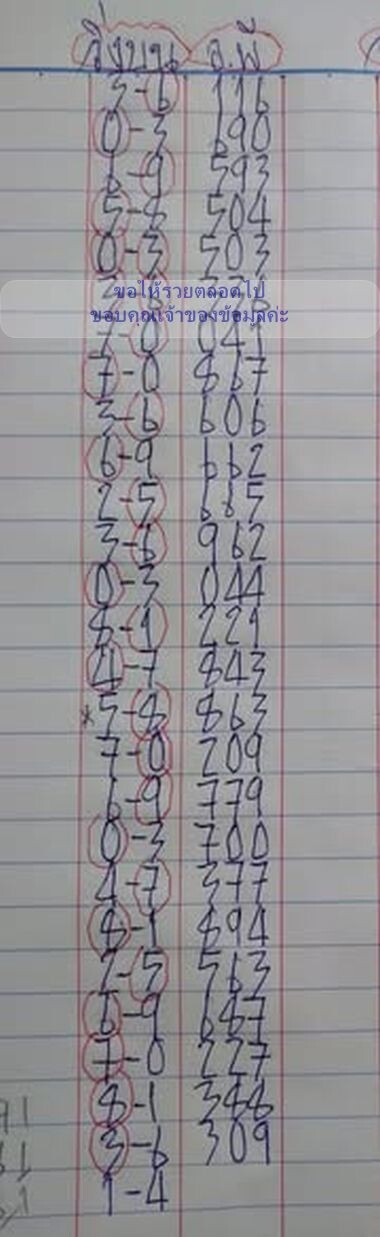 วิ่งบน จ.พี
3-6 116
0-3 690
6-9 593
5-8 504
0-3 503
ขอให้รวยตลอดไป
ขอบคุณเจ้าของข้อมูลค่ะ
7-0 041
7-0 867
3-6 606
6-9 662
2-5 665
3-6 962
0-3 044
8-1 221
4-7 843
*5-8 863
7-0 209
6-9 779
0-3 700
4-7 377
8-1 894
2-5 563
6-9 687
7-0 227
8-1 388
3-6 309
1-4